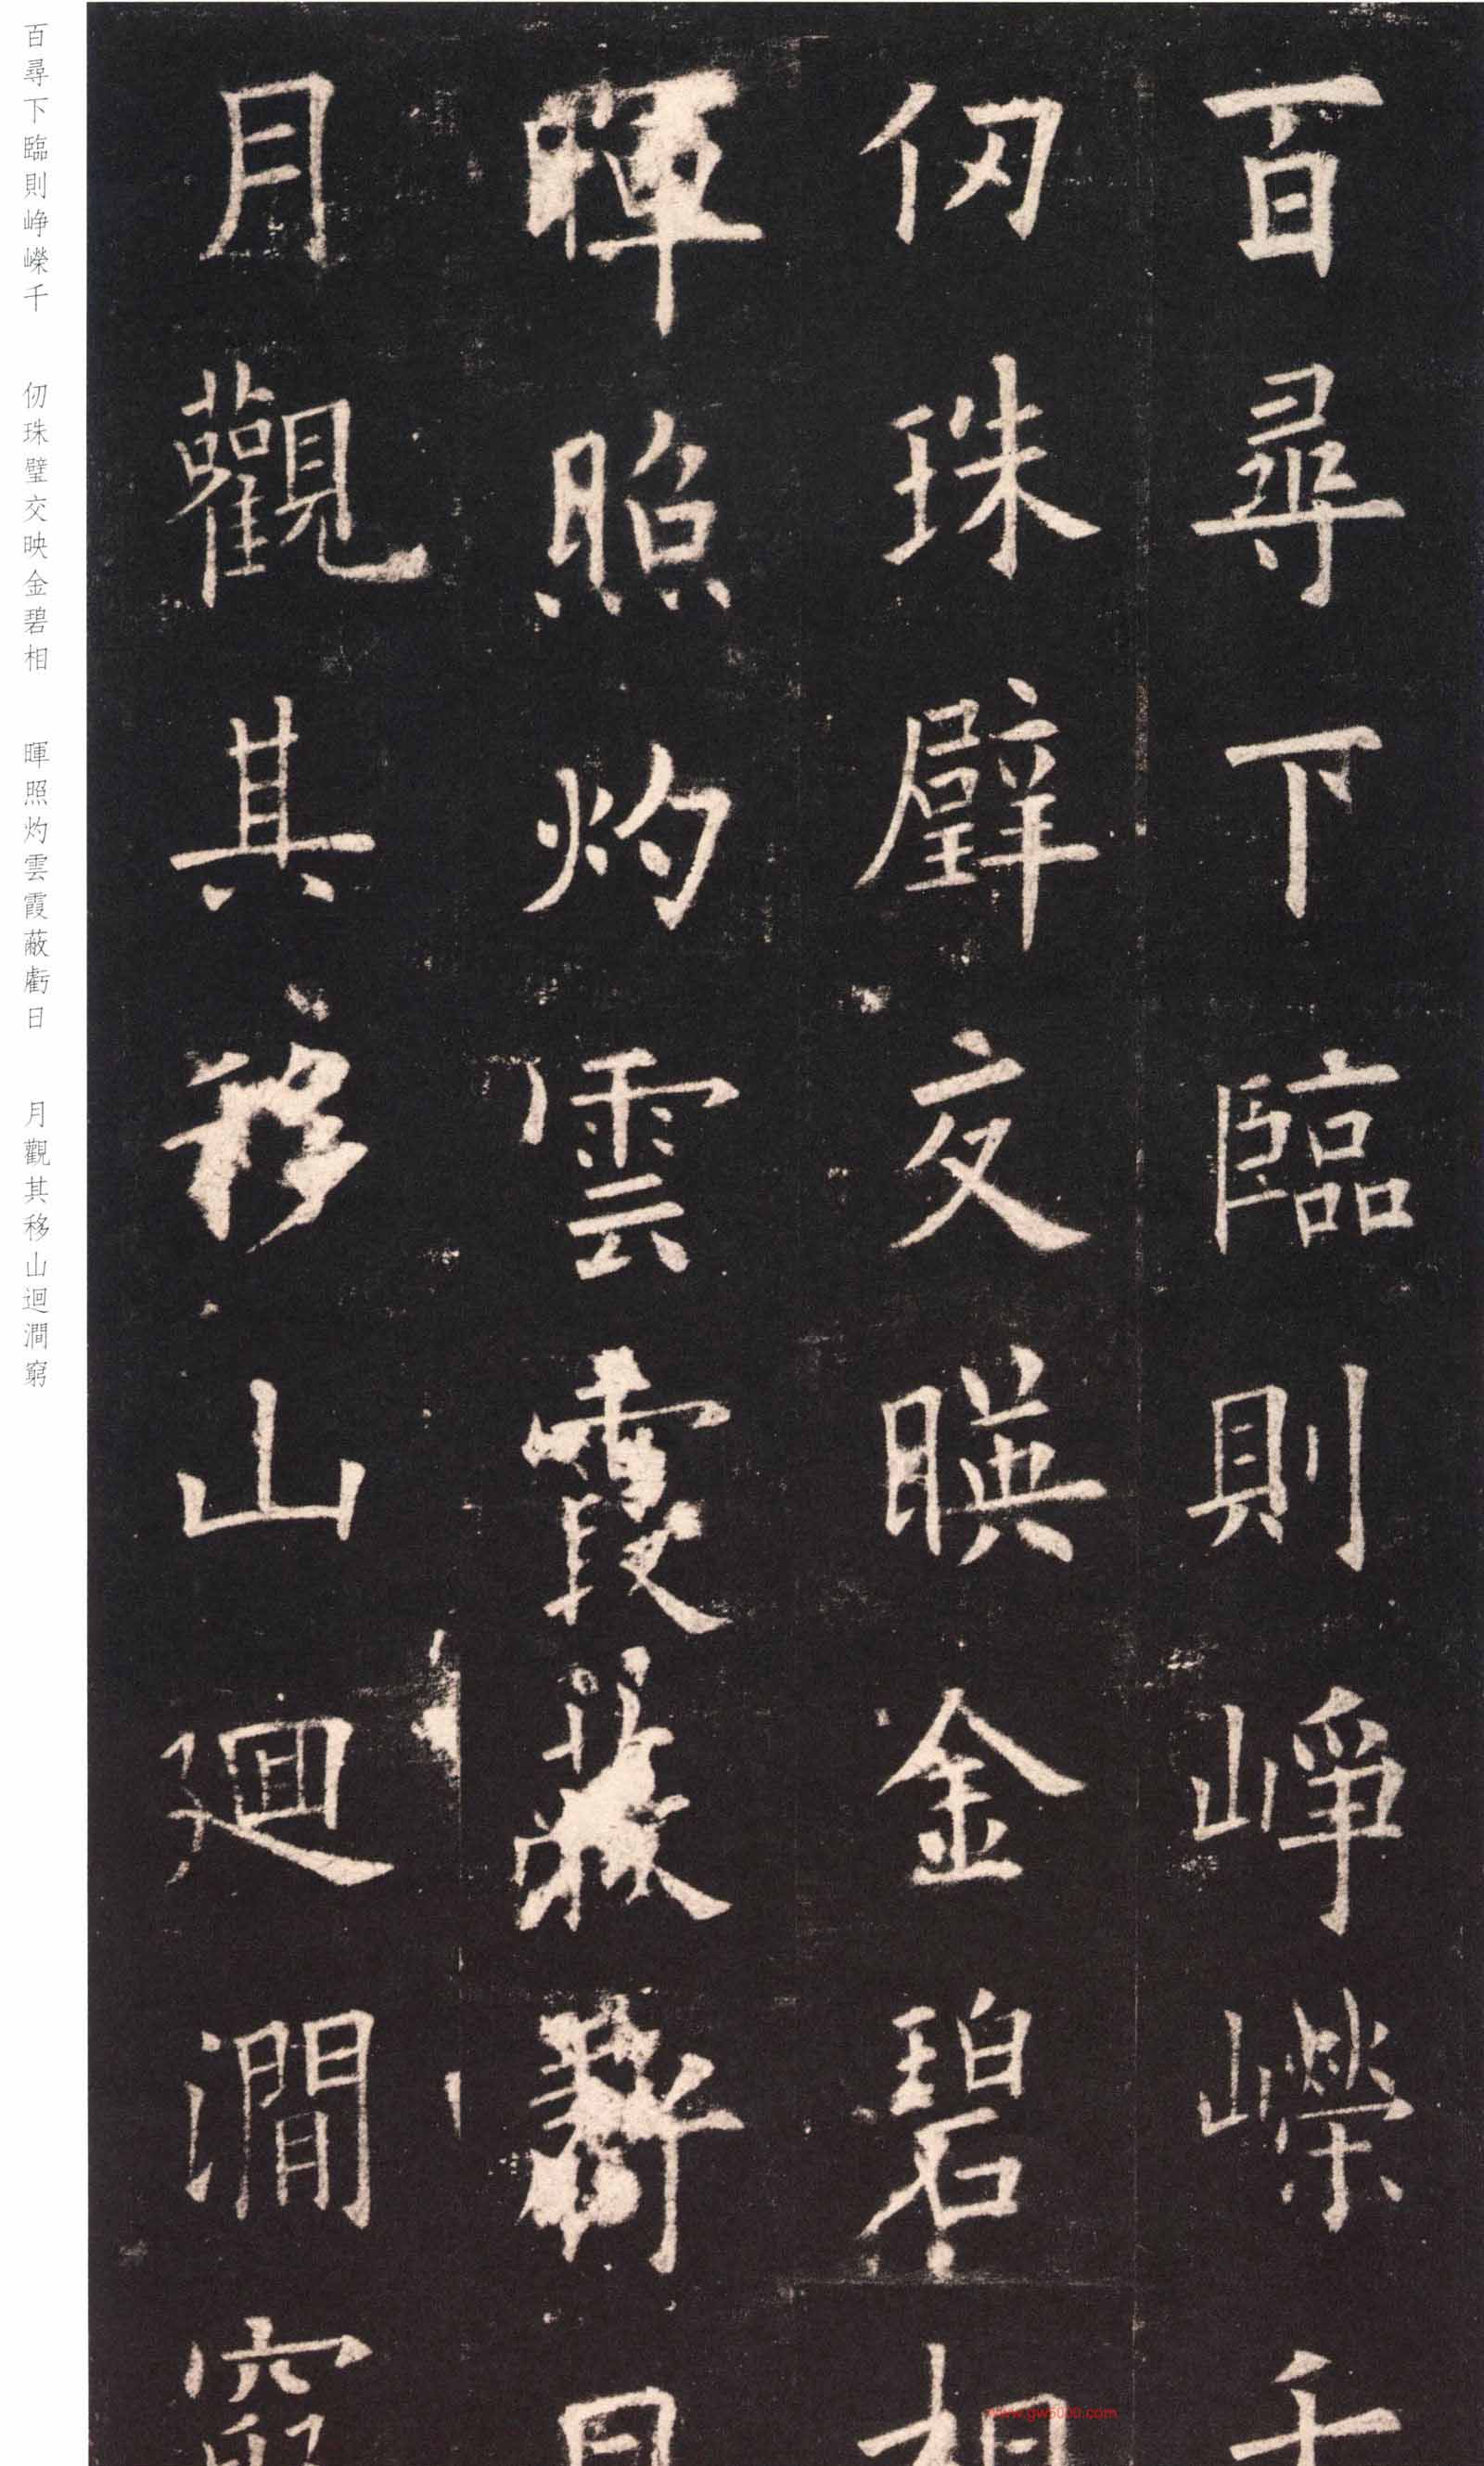 百尋下臨則崢嶸千
仞珠璧交暎金碧相
暉照灼雲霞蔽虧日
月觀其移山迴澗窮
百尋下臨則崢嶸千 仞珠璧交映金碧相 暉照灼雲霞蔽虧日 月觀其移山迴澗窮
www.gw5000.com